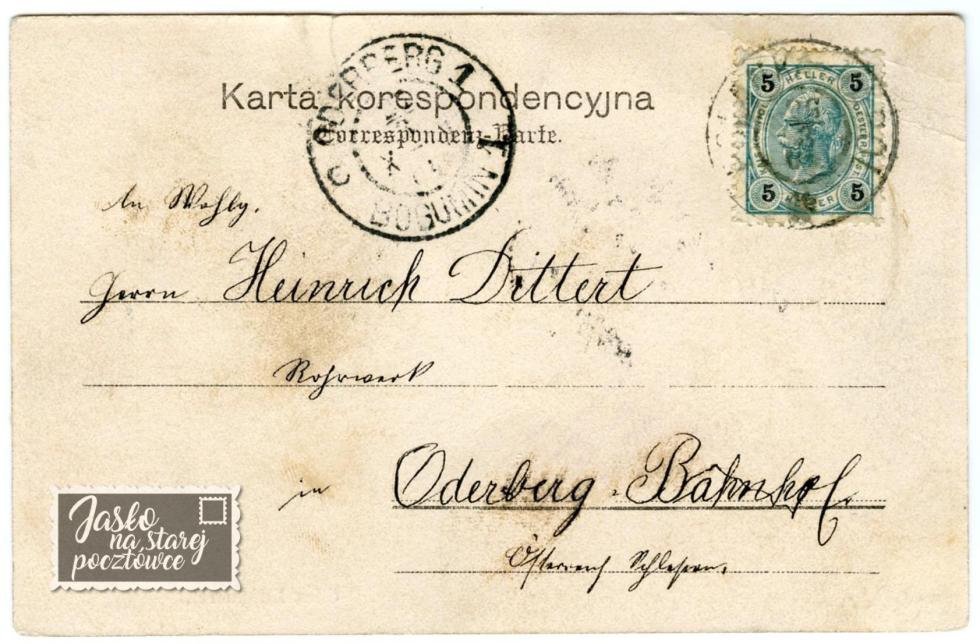 Karta korespondencyjna
Correspondenz-Karte.
ODERBERG 1
BOGUMIN 1
5 HELLER 5
5 HELLER 5
An Wohlg.
Herrn Heinrich Dittert
Rohrwerk
in Oderberg-Bahnhof
Österreich Schlesien.
Jasło
na starej
pocztówce